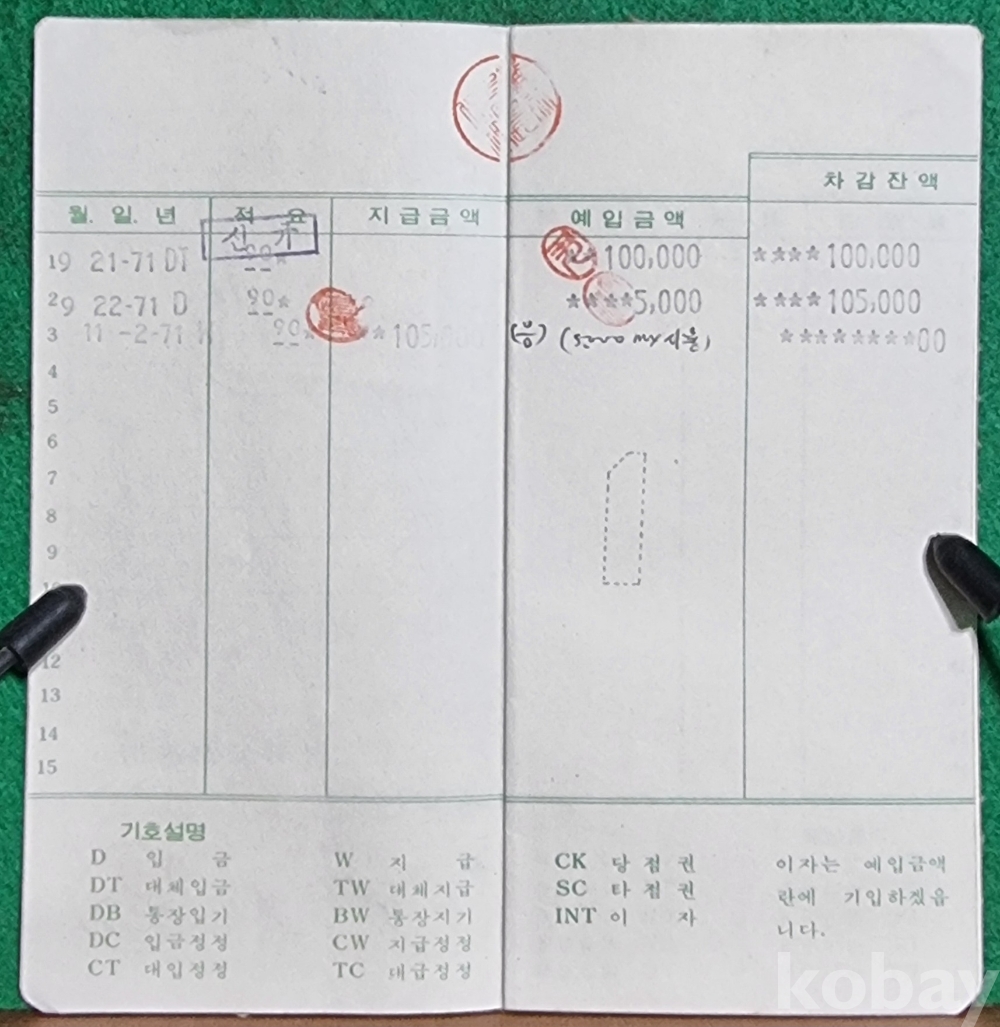 차 감 잔 액
월. 일. 년 적 요 지 급 금 액 예 입 금 액
신 가
1 9 21-71 DT 90* **100,000 ****100,000
2 9 22-71 D 90* ****5,000 ****105,000
3 11 -2-71 90* **105,000 ********00
4
5
6
7
8
9
12
13
14
15
기호설명
D 입 금 W 지 급 CK 당 점 권 이자는 예입금액
DT 대체입금 TW 대체지급 SC 타 점 권 란에 기입하겠읍
DB 통장입기 BW 통장지기 INT 이 자 니다.
DC 입금정정 CW 지급정정
CT 대입정정 TC 대급정정
kobay